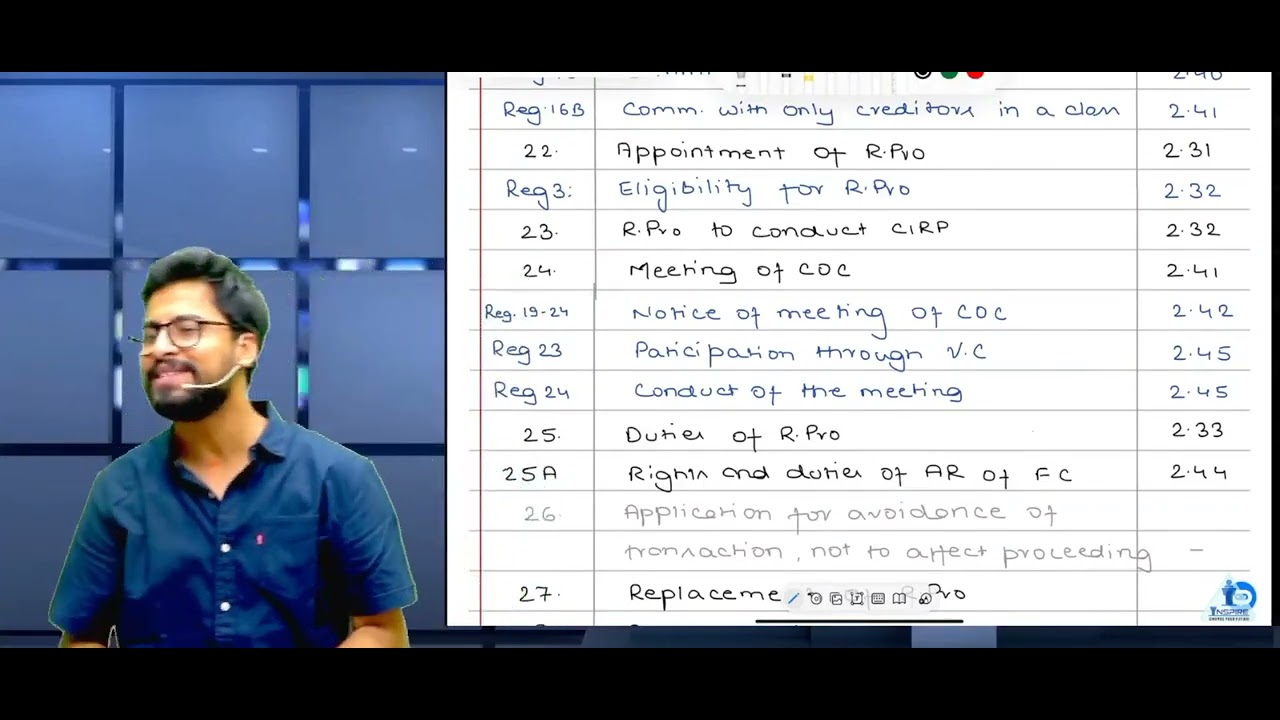 Reg.16B Comm. with only creditors in a class 2.41
22. Appointment of R.Pro 2.31
Reg 3: Eligibility for R.Pro 2.32
23. R.Pro to conduct CIRP 2.32
24. Meeting of COC 2.41
Reg. 19-24 Notice of meeting of COC 2.42
Reg 23 Paticipation through V.C 2.45
Reg 24 Conduct of the meeting 2.45
25. Duties of R.Pro 2.33
25A Rights and duties of AR of FC 2.44
26. Application for avoidance of
transaction, not to affect proceeding -
27. Replaceme Pro
INSPIRE